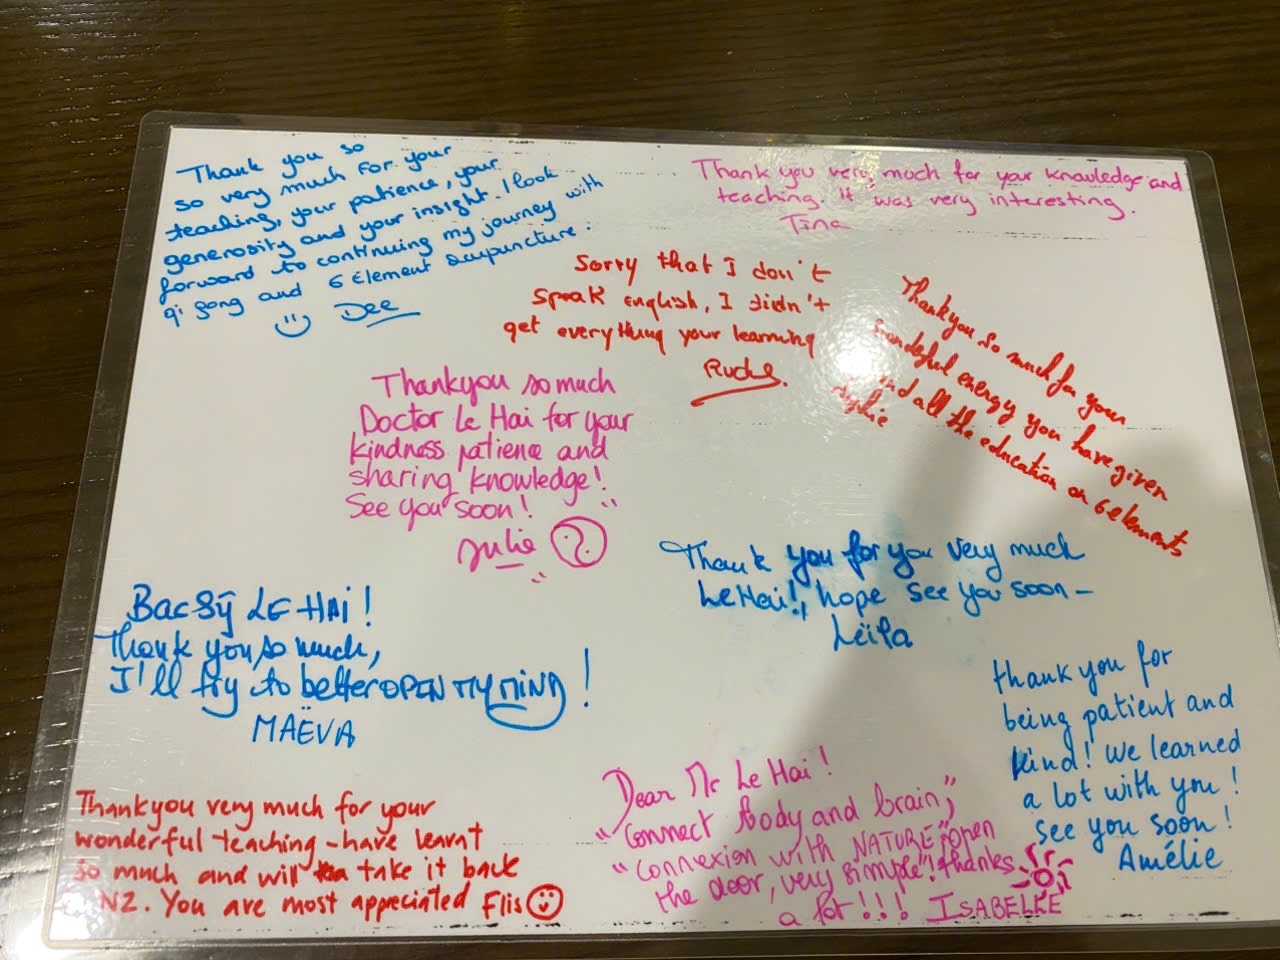 Thank you so
so very much for your
teaching, your patience, your
generosity and your insight. I look
forward to continuing my journey with
qi gong and 6 Element acupuncture.
Dee
Thank you very much for your knowledge and
teaching. It was very interesting.
Tina
Sorry that I don't
speak english, I didn't
get everything your learning
Thankyou so much for your
wonderful energy you have given
and all the education on 6 elements
Sophie
Thankyou so much
Doctor Le Hai for your
kindness patience and
sharing knowledge!
See you soon!
Julie
Thank you for you very much
Le Hai!, hope see you soon -
Leïla
Bac Sỹ LE HAI!
Thank you so much,
I'll try to better OPEN MY MIND!
MAËVA
thank you for
being patient and
kind! We learned
a lot with you!
See you soon!
Amélie
Thankyou very much for your
wonderful teaching - have learnt
so much and will take it back
NZ. You are most appreciated Flis
Dear Mr Le Hai!
"Connect Body and brain",
"Connexion with NATURE" "open
the door, very simple"! thanks
a lot!!! ISABELLE